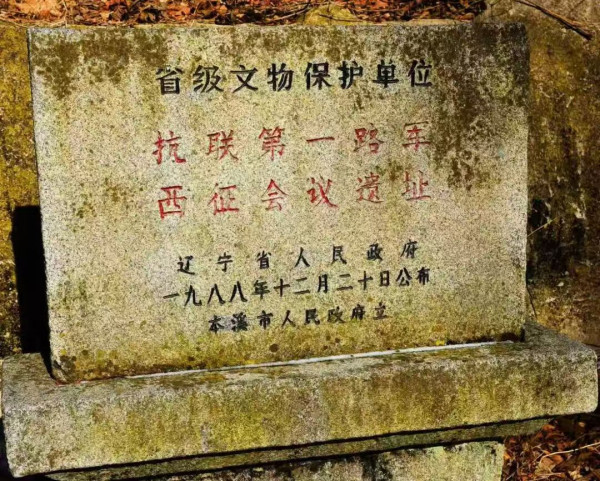 省级文物保护单位
抗联第一路军
西征会议遗址
辽宁省人民政府
一九八八年十二月二十日公布
本溪市人民政府立